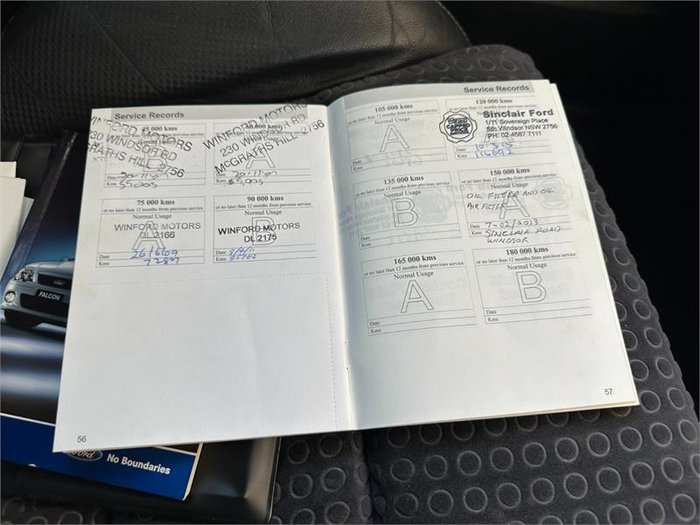 Service Records
45 000 kms
or no later than 12 months from previous service
Normal Usage
WINFORD MOTORS
230 WINDSOR RD
McGRATHS HILL 2756
A
Date
Kms
WINFORD MOTORS
230 WINDSOR RD
McGRATHS HILL 2756
B
Date
Kms
75 000 kms
or no later than 12 months from previous service
Normal Usage
WINFORD MOTORS
DL 2166
A
Date
Kms
90 000 kms
or no later than 12 months from previous service
Normal Usage
WINFORD MOTORS
DL 2175
B
Date
Kms
56
Service Records
105 000 kms
or no later than 12 months from previous service
Normal Usage
A
Date
Kms
120 000 kms
or no later than 12 months from previous service
Sinclair Ford
1/11 Sovereign Place
Sth Windsor NSW 2756
PH: 02 4587 7111
Date
Kms
135 000 kms
or no later than 12 months from previous service
Normal Usage
B
Date
Kms
150 000 kms
or no later than 12 months from previous service
Normal Usage
OIL FILTER AND OIL
AIR FILTER
A
Date 7-02/2023
Kms SINCLAIR FORD
WINDSOR
165 000 kms
or no later than 12 months from previous service
Normal Usage
A
Date
Kms
180 000 kms
or no later than 12 months from previous service
Normal Usage
B
Date
Kms
57
FALCON
Ford
No Boundaries